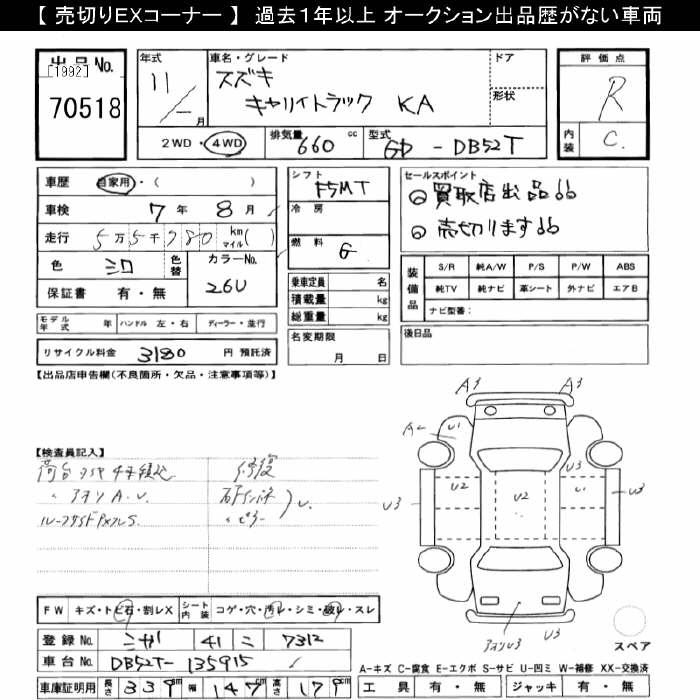 【 売切りEXコーナー 】 過去１年以上 オークション出品歴がない車両
出品No.
[1992]
70518
年式
11/ 月
車名・グレード
スズキ
キャリイトラック KA
ドア
形状
評価点
R
内装
C.
2WD・4WD
排気量 660 cc
型式 GD - DB52T
車歴 自家用・( )
車検 7年 8月
走行 5万5千780 km マイル ( )
色 シロ 色替
カラーNo. 26U
保証書 有・無
シフト F5MT
冷房
燃料 G
乗車定員 名
積載量 kg
総重量 kg
名変期限
月 日
セールスポイント
◎買取店出品!!
◎売切ります!!
装備品
S/R 純A/W P/S P/W ABS
純TV 純ナビ 革シート 外ナビ エアB
ナビ型番：
後日品
モデル年式 年 ハンドル 左・右 ディーラー・並行
リサイクル料金 3180 円 預託済
【出品店申告欄(不良箇所・欠品・注意事項等)】
【検査員記入】
荷台
アオリA.U.
修復
A3 A3
U1
U2 U2 U1
U3 U3
アオリU3
スペア
FW キズ・トビ石・割レX
シート内装 コゲ・穴・汚レ・シミ・破レ・スレ
登録No. 41 ニ 7312
車台No. DB52T-135915
車庫証明用 長さ 339cm 幅 147cm 高さ 179cm
A-キズ C-腐食 E-エクボ S-サビ U-凹ミ W-補修 XX-交換済
工具 有・無 ジャッキ 有・無